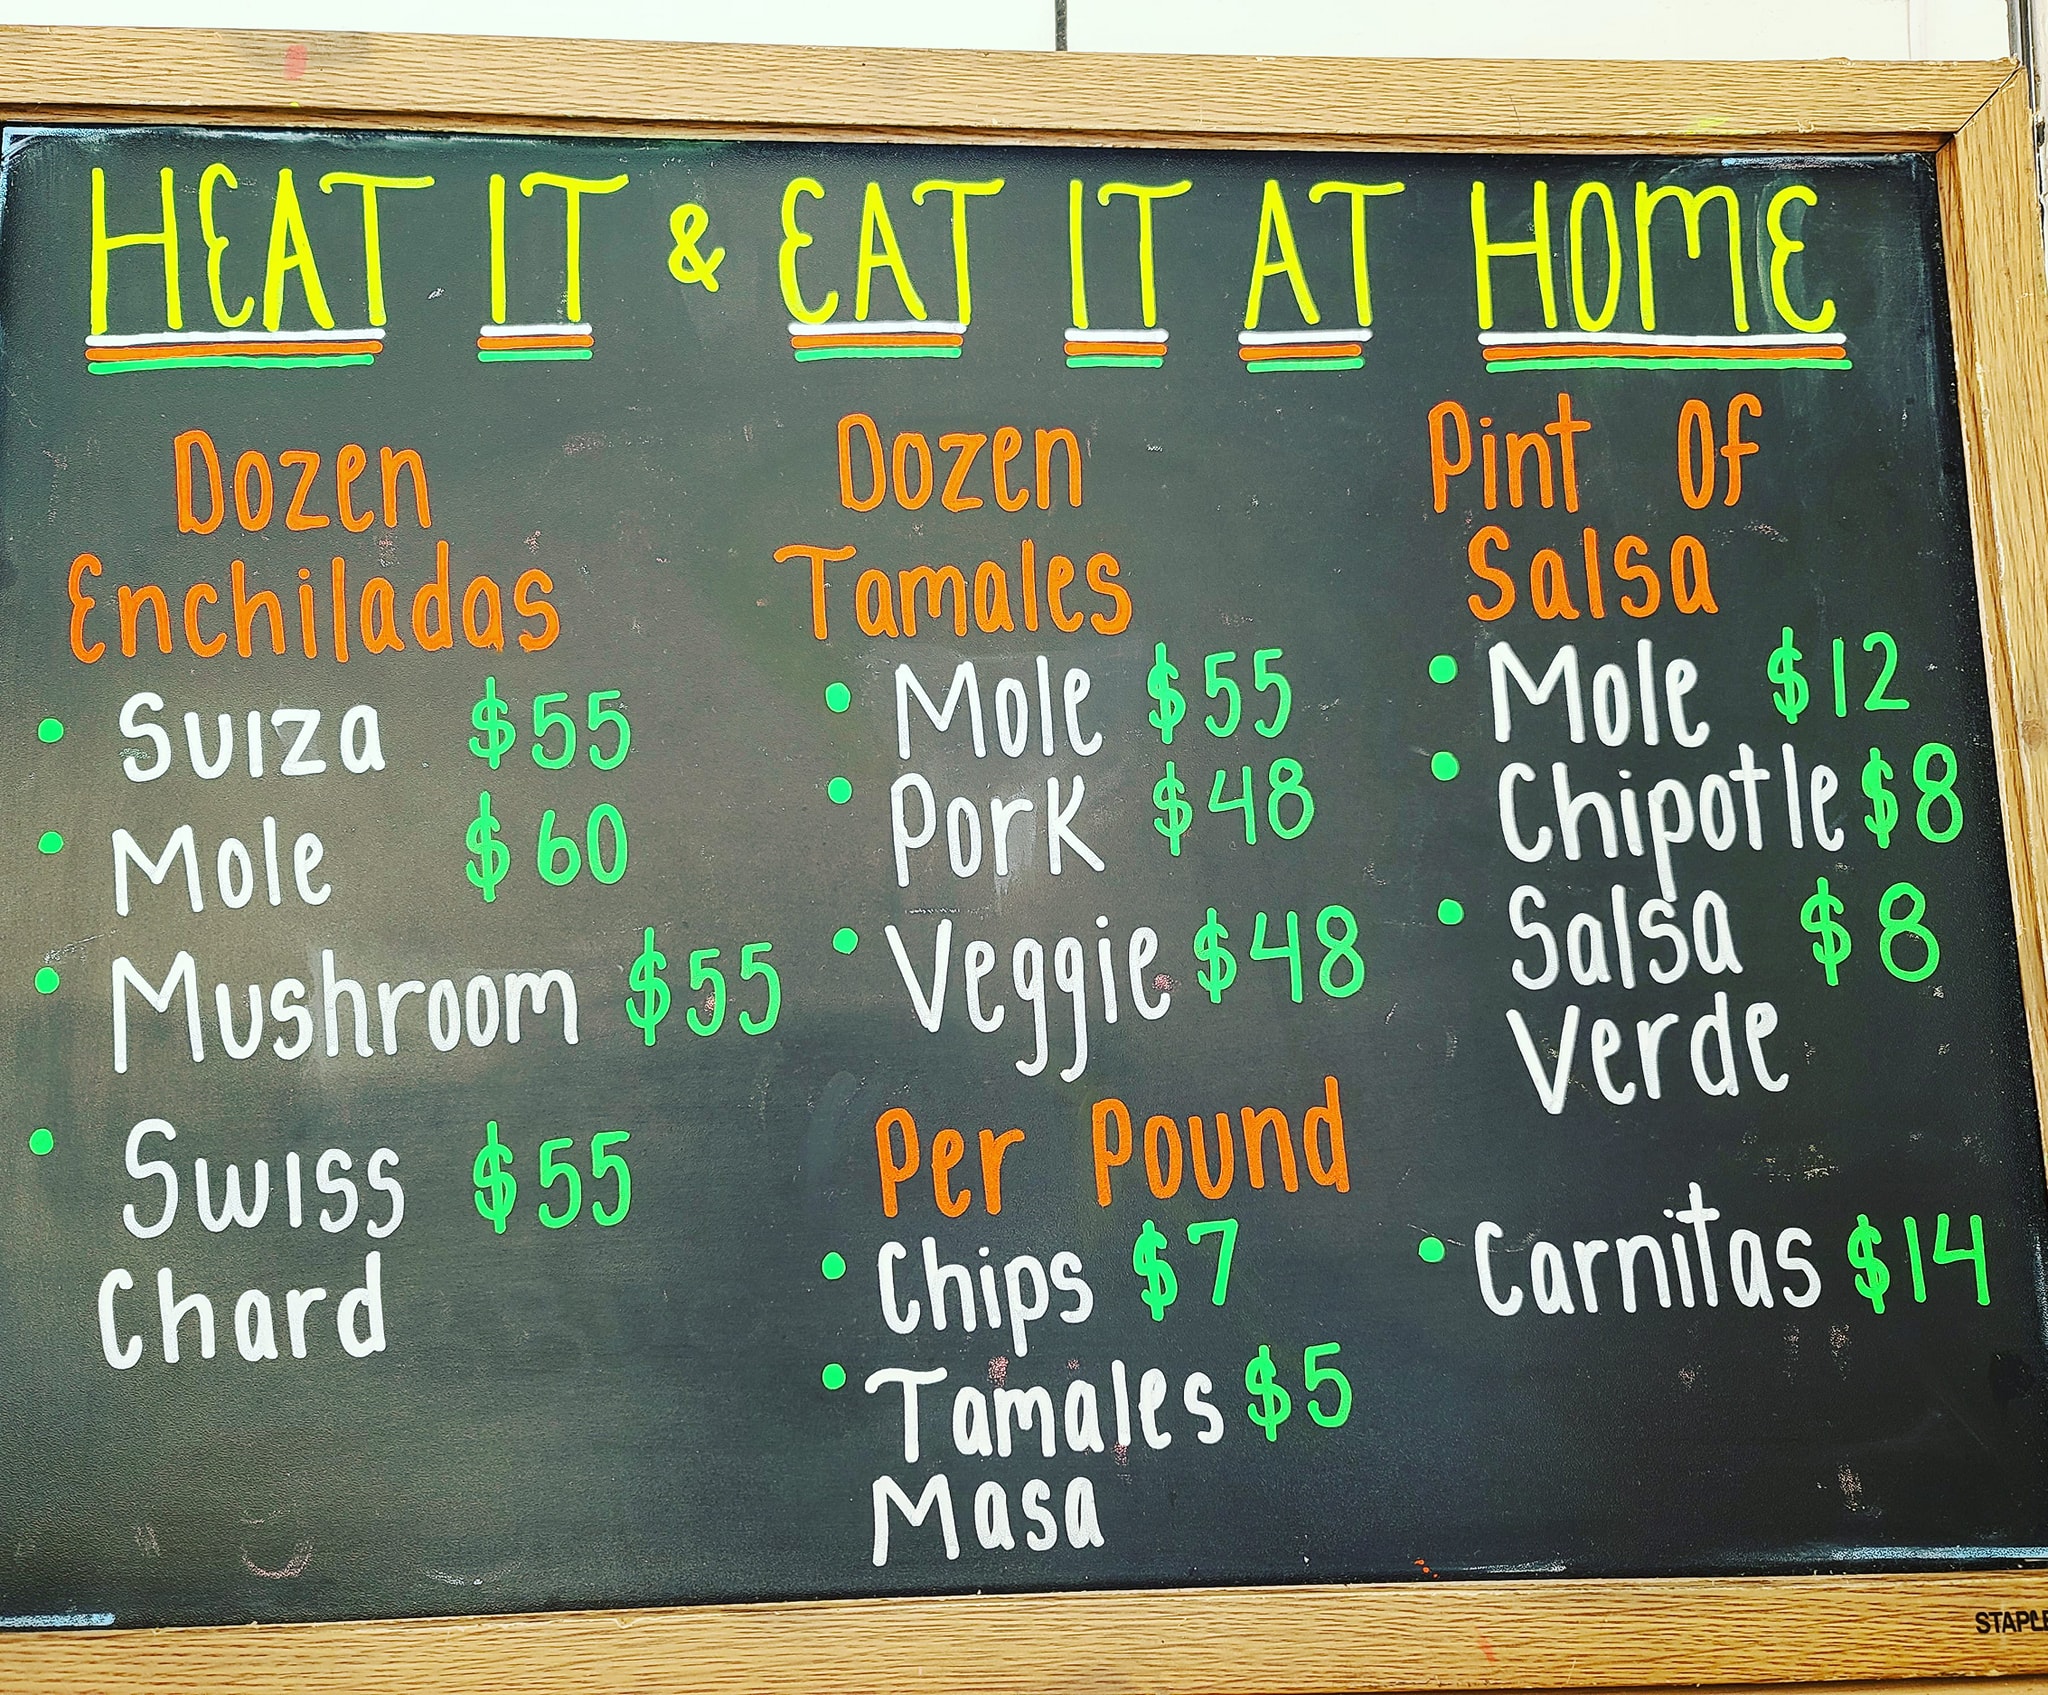 HEAT IT & EAT IT AT HOME
Dozen
Enchiladas
• Suiza $55
• Mole $60
• Mushroom $55
• Swiss $55
Chard
Dozen
Tamales
• Mole $55
• Pork $48
• Veggie $48
Per Pound
• Chips $7
• Tamales $5
Masa
Pint Of
Salsa
• Mole $12
• Chipotle $8
• Salsa $8
Verde
• Carnitas $14